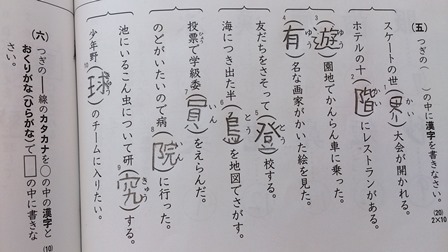 (五) つぎの( )の中に漢字を書きなさい。 (20) 2×10
スケートの世(界)大会が開かれる。
ホテルの十(階)にレストランがある。
(遊)園地でかんらん車に乗った。
(有)名な画家がかいた絵を見た。
友だちをさそって(登)校する。
海につき出た半(島)を地図でさがす。
投票で学級委(員)をえらんだ。
のどがいたいので病(院)に行った。
池にいるこん虫について研(究)する。
少年野(球)のチームに入りたい。
(六) つぎの――線のカタカナを○の中の漢字と
おくりがな(ひらがな)で□の中に書きな
さい。 (10)